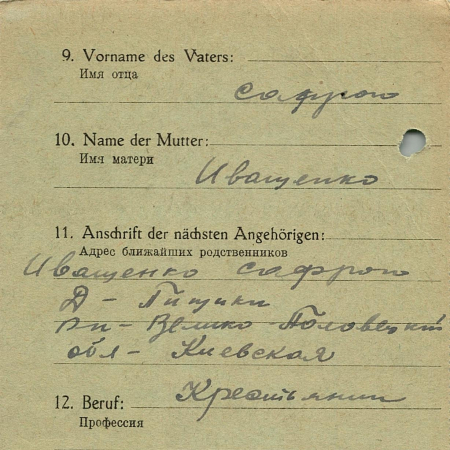 9. Vorname des Vaters:
Имя отца
Сафрон
10. Name der Mutter:
Имя матери
Иващенко
11. Anschrift der nächsten Angehörigen:
Адрес ближайших родственников
Иващенко Сафрон
Д - Пищики
Велико Половецкий
обл - Киевская
Крестьянин
12. Beruf:
Профессия